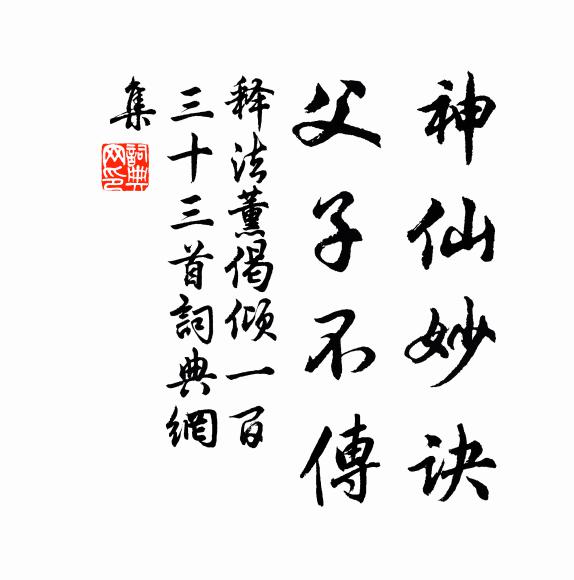 神仙妙诀
父子不傳
释法薰偈傾一百
三十三首詞典網
集
詞典網印